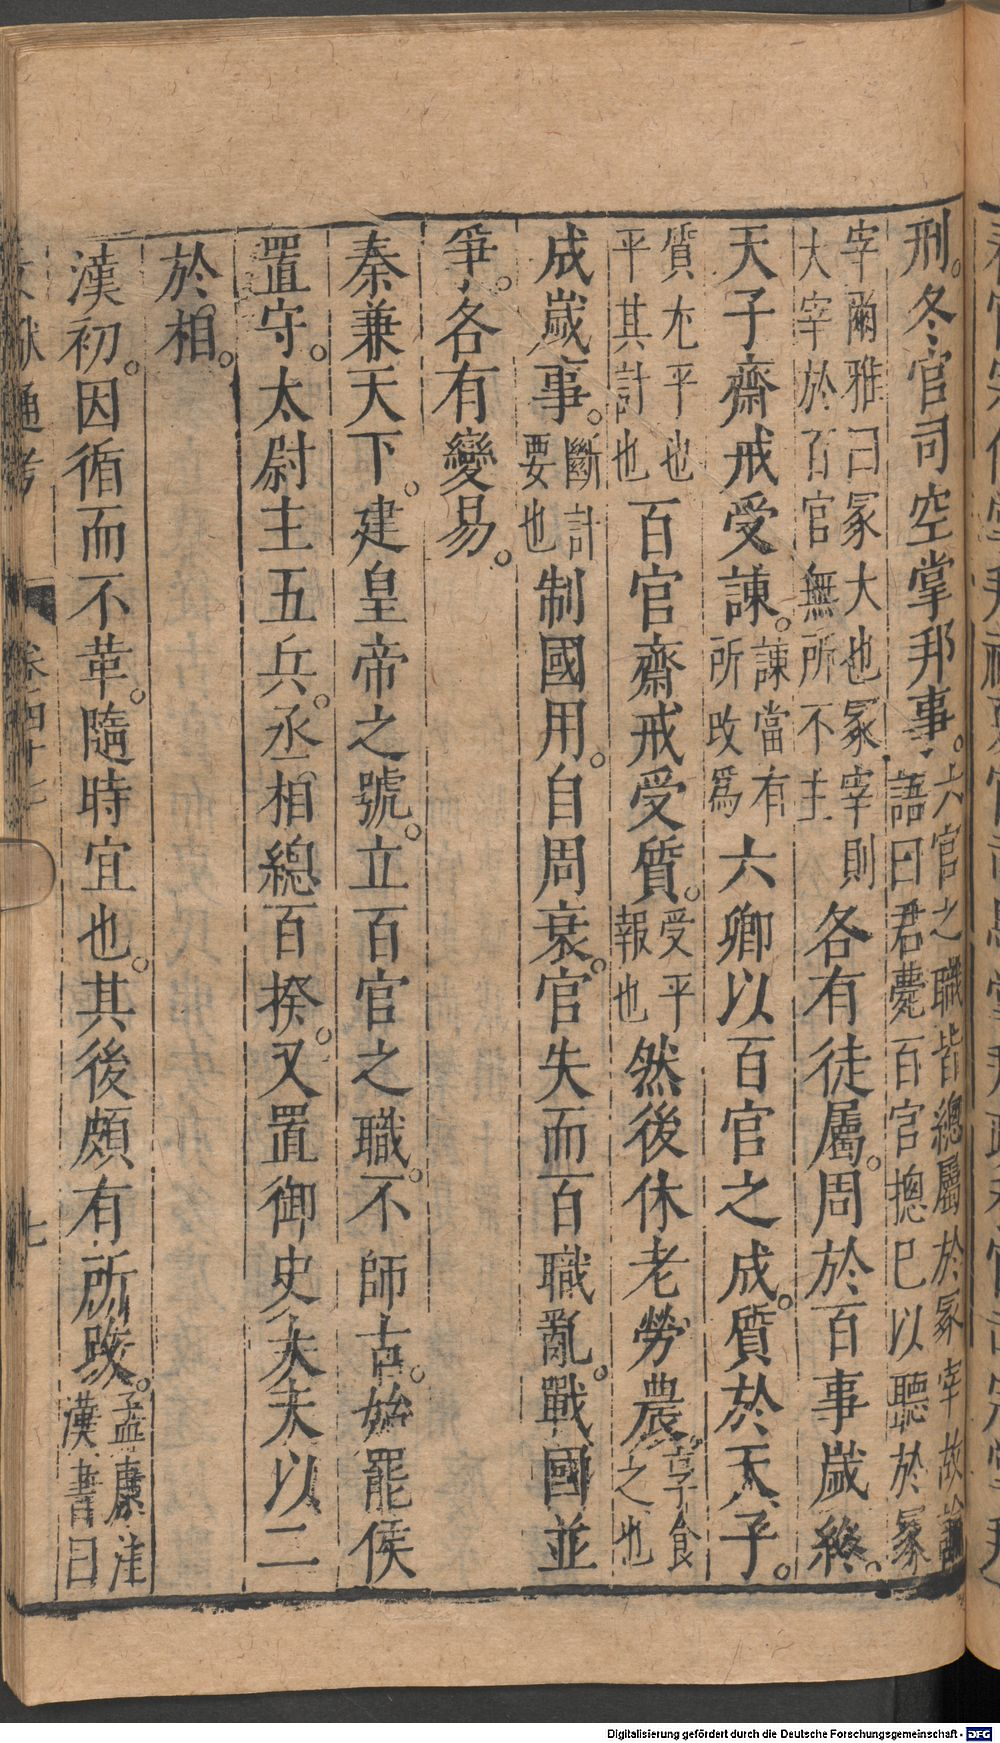 刑。冬官司空掌邦事。六官之職皆總屬於冢宰故論語曰君薨百官摠已以聽於冢
宰爾雅曰冢大也冢宰則大宰於百官無所不主各有徒屬。周於百事歲終。
天子齋戒受諫。諫當有所改爲六卿以百官之成。質於天子。
質尢平也平其計也百官齋戒受質。受平報也然後休老勞農。享食之也
成歲事。斷計要也制國用。自周衰。官失而百職亂。戰國並
爭。各有變易。
秦兼天下。建皇帝之號。立百官之職。不師古。始罷侯
置守。太尉主五兵。丞相總百揆。又置御史大夫以二
於。相。
漢初。因循而不革。隨時宜也。其後頗有所改。孟康注漢書曰
獻通考
卷四十七
七
Digitalisierung gefördert durch die Deutsche Forschungsgemeinschaft - DFG